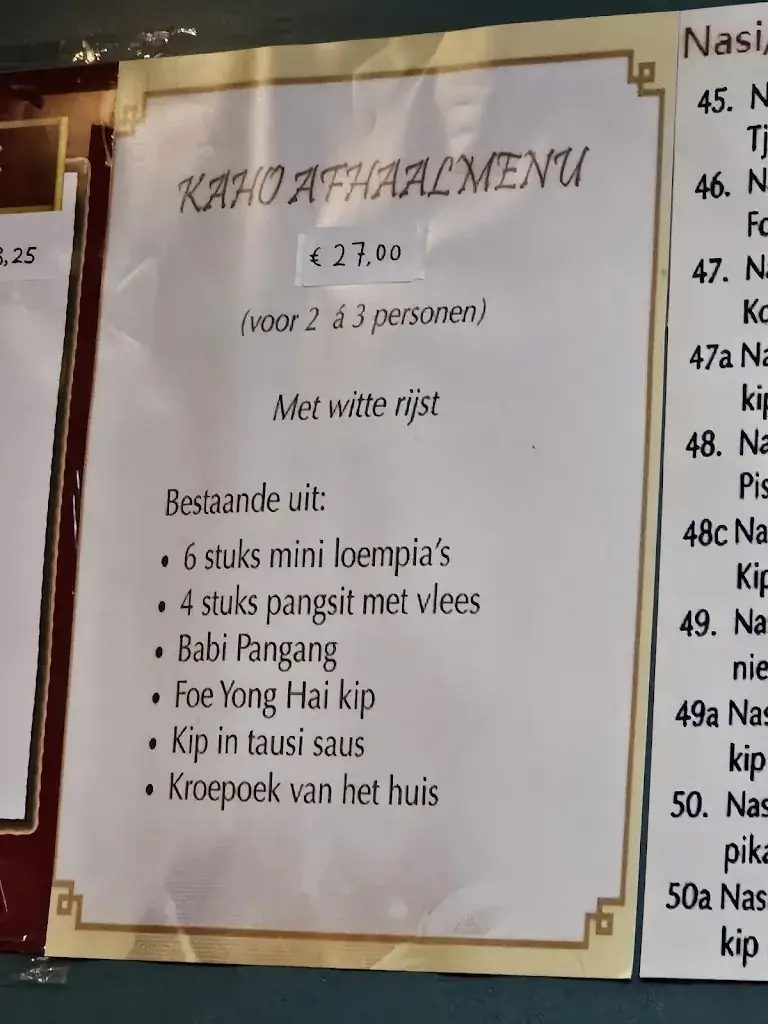 8,25
KAHO AFHAALMENU
€ 27,00
(voor 2 á 3 personen)
Met witte rijst
Bestaande uit:
• 6 stuks mini loempia's
• 4 stuks pangsit met vlees
• Babi Pangang
• Foe Yong Hai kip
• Kip in tausi saus
• Kroepoek van het huis
Nasi/
45. N
Tj
46. N
Fo
47. Na
Ko
47a Na
kip
48. Na
Pis
48c Na
Kip
49. Na
nie
49a Nas
kip
50. Nas
pika
50a Nas
kip